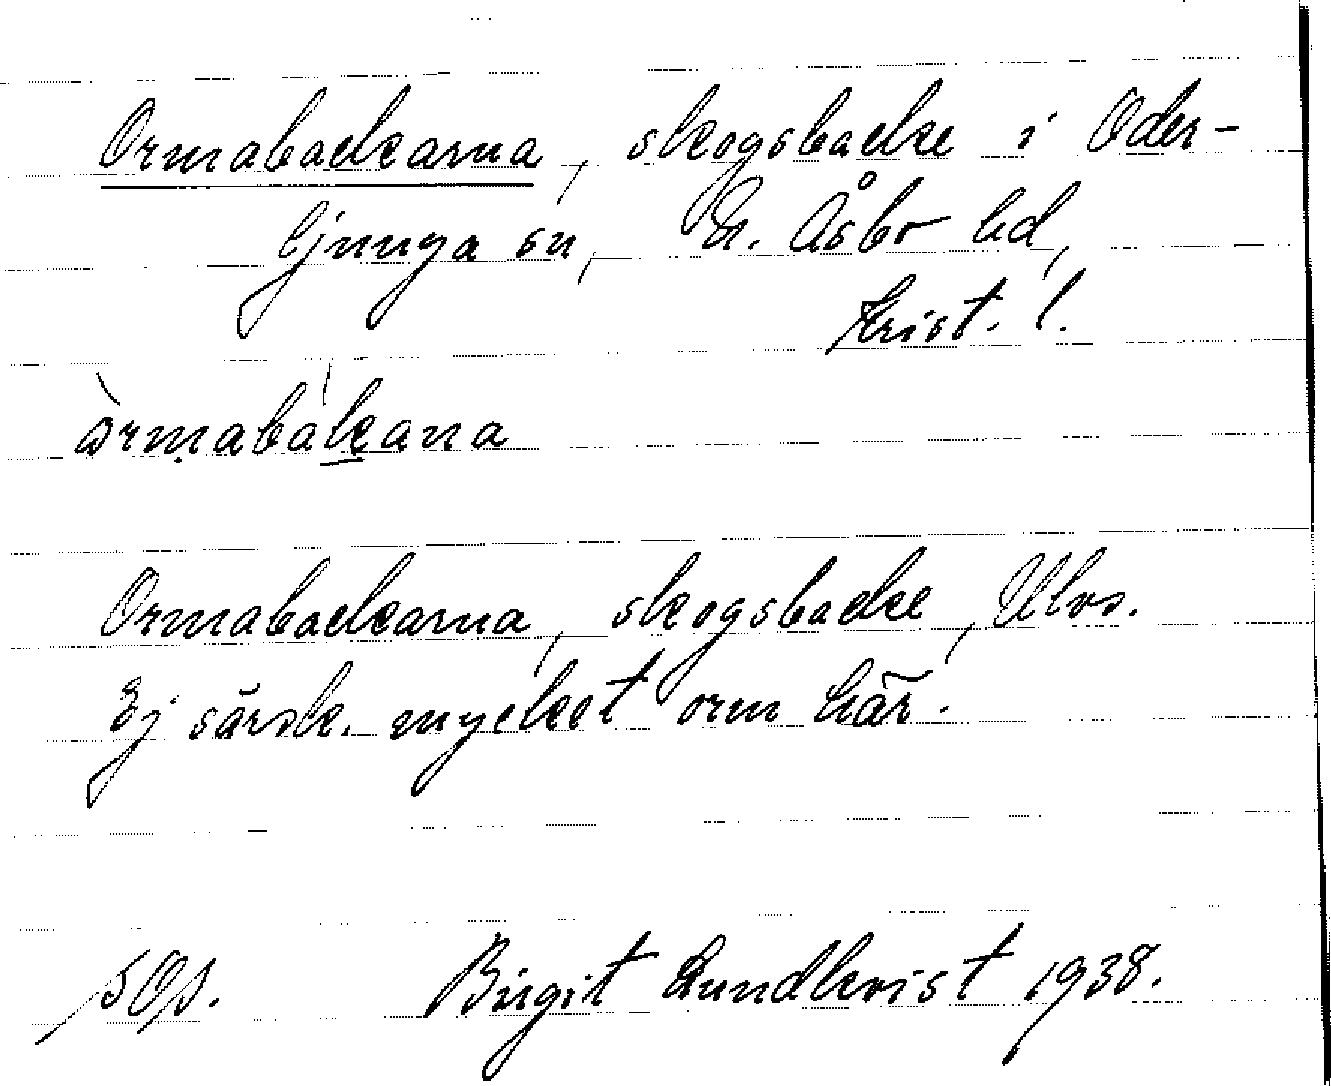 Ormabackarna, skogsbacke i Oder-
ljunga sn, N. Åsbo hd,
Krist. l.
òrmabákana
Ormabackarna, skogsbacke, Ulvs.
Ej särsk. mycket orm här.
Birgit Lundkvist 1938.